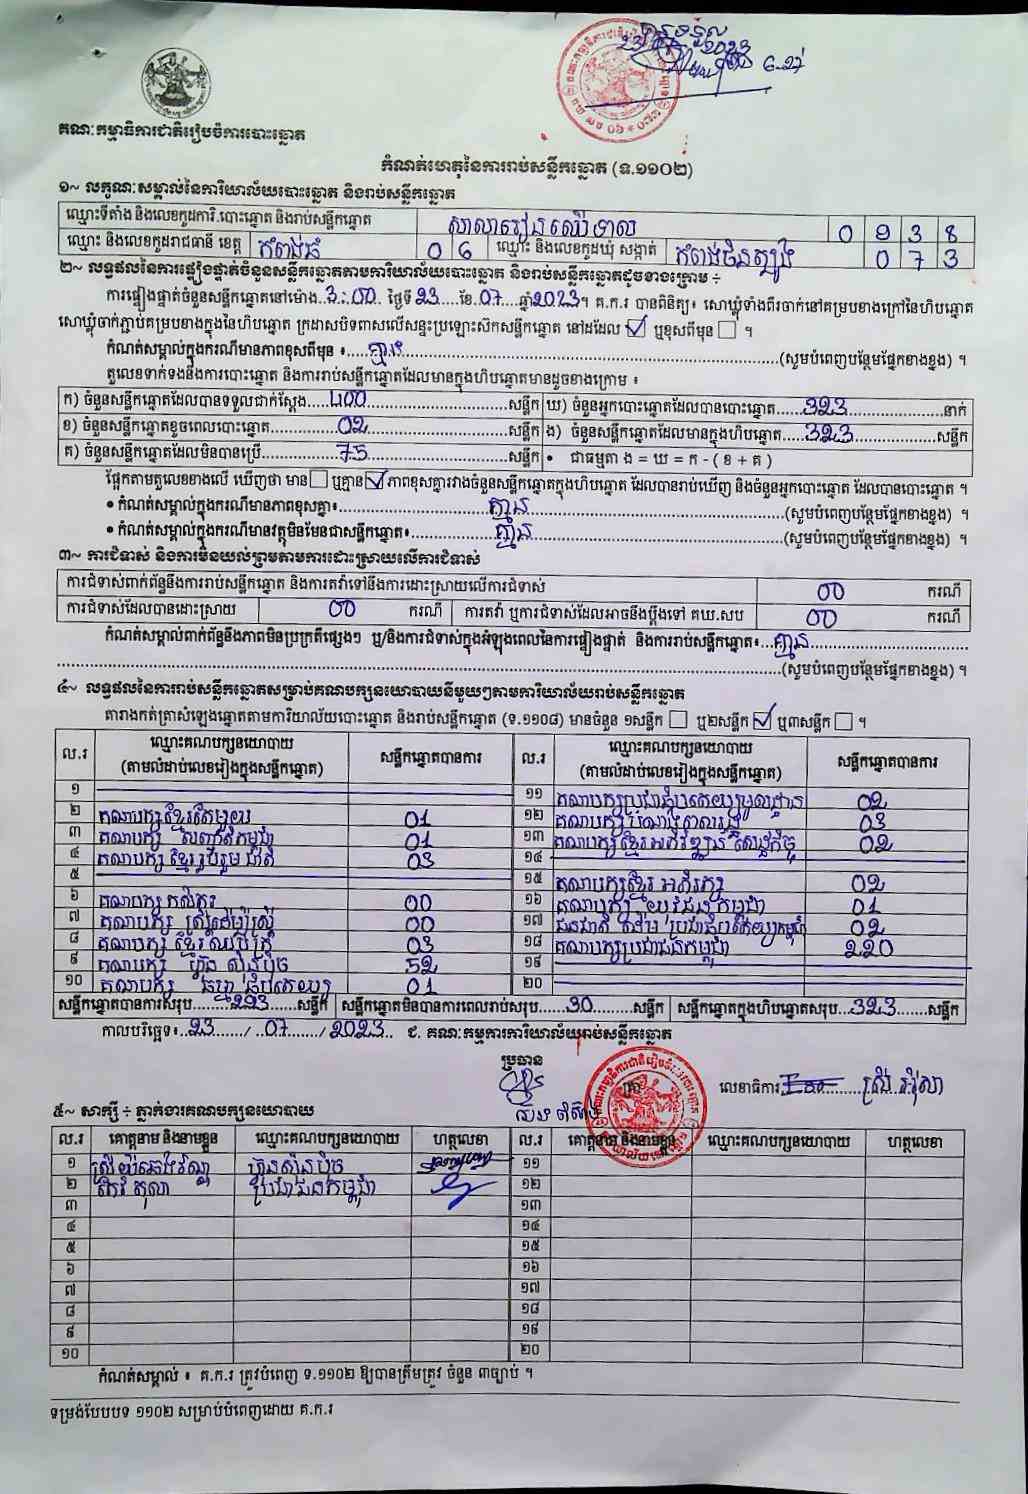 គណៈកម្មាធិការជាតិរៀបចំការបោះឆ្នោត
កំណត់ហេតុនៃការរាប់សន្លឹកឆ្នោត (ទ.១១០២)
១~ លក្ខណៈសម្គាល់នៃការិយាល័យបោះឆ្នោត និងរាប់សន្លឹកឆ្នោត
ឈ្មោះទីតាំង និងលេខកូដការិ.បោះឆ្នោត និងរាប់សន្លឹកឆ្នោត សាលារៀនឈើទាល 0 9 3 8
ឈ្មោះ និងលេខកូដរាជធានី ខេត្ត កំពង់ធំ 0 6 ឈ្មោះ និងលេខកូដឃុំ សង្កាត់ កំពង់ចិនត្បូង 0 7 3
២~ លទ្ធផលនៃការផ្ទៀងផ្ទាត់ចំនួនសន្លឹកឆ្នោតតាមការិយាល័យបោះឆ្នោត និងរាប់សន្លឹកឆ្នោតដូចខាងក្រោម ÷
ការផ្ទៀងផ្ទាត់ចំនួនសន្លឹកឆ្នោតនៅម៉ោង 3:00 ថ្ងៃទី 23 ខែ 07 ឆ្នាំ 2023។ គ.ក.រ បានពិនិត្យ៖ សោឃ្លុំទាំងពីរចាក់នៅគម្របខាងក្រៅនៃហិបឆ្នោត
សោឃ្លុំចាក់ភ្ជាប់គម្របខាងក្នុងនៃហិបឆ្នោត ក្រដាសបិទពាសលើសន្ទះប្រឡោះស៊កសន្លឹកឆ្នោត នៅដដែល ☑ ឬខុសពីមុន ☐ ។
កំណត់សម្គាល់ក្នុងករណីមានភាពខុសពីមុន ៖ គ្មាន (សូមបំពេញបន្ថែមផ្នែកខាងខ្នង) ។
តួលេខទាក់ទងនឹងការបោះឆ្នោត និងការរាប់សន្លឹកឆ្នោតដែលមានក្នុងហិបឆ្នោតមានដូចខាងក្រោម ៖
ក) ចំនួនសន្លឹកឆ្នោតដែលបានទទួលជាក់ស្តែង 400 សន្លឹក ឃ) ចំនួនអ្នកបោះឆ្នោតដែលបានបោះឆ្នោត 323 នាក់
ខ) ចំនួនសន្លឹកឆ្នោតខូចពេលបោះឆ្នោត 02 សន្លឹក ង) ចំនួនសន្លឹកឆ្នោតដែលមានក្នុងហិបឆ្នោត 323 សន្លឹក
គ) ចំនួនសន្លឹកឆ្នោតដែលមិនបានប្រើ 75 សន្លឹក • ជាធម្មតា ង = ឃ = ក - ( ខ + គ )
ផ្អែកតាមតួលេខខាងលើ ឃើញថា មាន ☐ ឬគ្មាន ☑ ភាពខុសគ្នារវាងចំនួនសន្លឹកឆ្នោតក្នុងហិបឆ្នោត ដែលបានរាប់ឃើញ និងចំនួនអ្នកបោះឆ្នោត ដែលបានបោះឆ្នោត ។
• កំណត់សម្គាល់ក្នុងករណីមានភាពខុសគ្នា៖ គ្មាន (សូមបំពេញបន្ថែមផ្នែកខាងខ្នង) ។
• កំណត់សម្គាល់ក្នុងករណីមានវត្ថុមិនមែនជាសន្លឹកឆ្នោត៖ គ្មាន (សូមបំពេញបន្ថែមផ្នែកខាងខ្នង) ។
៣~ ការជំទាស់ និងការមិនយល់ព្រមតាមការដោះស្រាយលើការជំទាស់
ការជំទាស់ពាក់ព័ន្ធនឹងការរាប់សន្លឹកឆ្នោត និងការតវ៉ាទៅនឹងការដោះស្រាយលើការជំទាស់ 00 ករណី
ការជំទាស់ដែលបានដោះស្រាយ 00 ករណី ការតវ៉ា ឬការជំទាស់ដែលអាចនឹងប្តឹងទៅ គឃ.សប 00 ករណី
កំណត់សម្គាល់ពាក់ព័ន្ធនឹងភាពមិនប្រក្រតីផ្សេងៗ ឬ/និងការជំទាស់ក្នុងអំឡុងពេលនៃការផ្ទៀងផ្ទាត់ និងការរាប់សន្លឹកឆ្នោត៖ គ្មាន
(សូមបំពេញបន្ថែមផ្នែកខាងខ្នង) ។
៤~ លទ្ធផលនៃការរាប់សន្លឹកឆ្នោតសម្រាប់គណបក្សនយោបាយនីមួយៗតាមការិយាល័យរាប់សន្លឹកឆ្នោត
តារាងកត់ត្រាសំឡេងឆ្នោតតាមការិយាល័យបោះឆ្នោត និងរាប់សន្លឹកឆ្នោត (ទ.១១០៨) មានចំនួន ១សន្លឹក ☐ ឬ២សន្លឹក ☑ ឬ៣សន្លឹក ☐ ។
ល.រ ឈ្មោះគណបក្សនយោបាយ (តាមលំដាប់លេខរៀងក្នុងសន្លឹកឆ្នោត) សន្លឹកឆ្នោតបានការ
១
២ គណបក្សខ្មែរតែមួយ 01
៣ គណបក្ស សញ្ជាតិកម្ពុជា 01
៤ គណបក្ស ខ្មែររួបរួមជាតិ 03
៥
៦ គណបក្ស កសិករ 00
៧ គណបក្ស ស្ត្រីដើម្បីស្ត្រី 00
៨ គណបក្ស ខ្មែរឈប់ក្រ 03
៩ គណបក្ស ហ៊្វុនស៊ិនប៉ិច 52
១០ គណបក្ស ធម្មាធិបតេយ្យ 01
ល.រ ឈ្មោះគណបក្សនយោបាយ (តាមលំដាប់លេខរៀងក្នុងសន្លឹកឆ្នោត) សន្លឹកឆ្នោតបានការ
១១ គណបក្សប្រជាធិបតេយ្យមូលដ្ឋាន 02
១២ គណបក្ស សំណាញ់ពលរដ្ឋ 03
១៣ គណបក្សខ្មែរអភិវឌ្ឍន៍សេដ្ឋកិច្ច 02
១៤
១៥ គណបក្សខ្មែរ អភិរក្ស 02
១៦ គណបក្ស យុវជនកម្ពុជា 01
១៧ ជនជាតិដើម ប្រជាធិបតេយ្យកម្ពុជា 02
១៨ គណបក្សប្រជាជនកម្ពុជា 220
១៩
២០
សន្លឹកឆ្នោតបានការសរុប 293 សន្លឹក សន្លឹកឆ្នោតមិនបានការពេលរាប់សរុប 30 សន្លឹក សន្លឹកឆ្នោតក្នុងហិបឆ្នោតសរុប 323 សន្លឹក
កាលបរិច្ឆេទ៖ 23 / 07 / 2023 ជ. គណៈកម្មការការិយាល័យរាប់សន្លឹកឆ្នោត
ប្រធាន លេខាធិការ
៥~ សាក្សី ÷ ភ្នាក់ងារគណបក្សនយោបាយ
ល.រ គោត្តនាម និងនាមខ្លួន ឈ្មោះគណបក្សនយោបាយ ហត្ថលេខា ល.រ គោត្តនាម និងនាមខ្លួន ឈ្មោះគណបក្សនយោបាយ ហត្ថលេខា
១ ហ៊្វុនស៊ិនប៉ិច ១១
២ កែវ តុលា ប្រជាជនកម្ពុជា ១២
៣ ១៣
៤ ១៤
៥ ១៥
៦ ១៦
៧ ១៧
៨ ១៨
៩ ១៩
១០ ២០
កំណត់សម្គាល់ ៖ គ.ក.រ ត្រូវបំពេញ ទ.១១០២ ឱ្យបានត្រឹមត្រូវ ចំនួន ៣ច្បាប់ ។
ទម្រង់បែបបទ ១១០២ សម្រាប់បំពេញដោយ គ.ក.រ